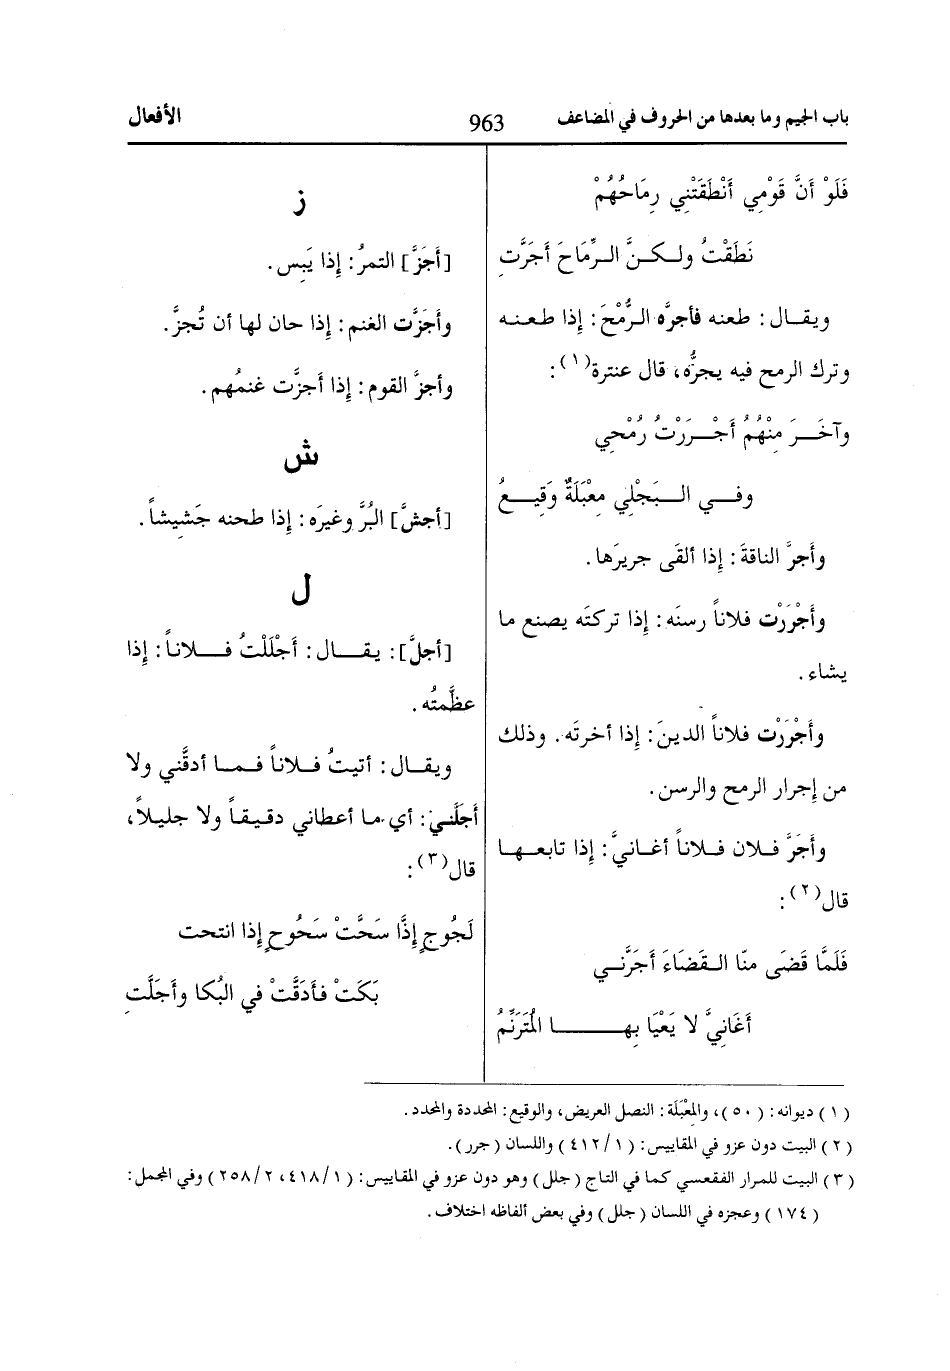 باب الجيم وما بعدها من الحروف في المضاعف 963 الأفعال
فَلَوْ أَنَّ قَوْمِي أَنْطَقَتْنِي رِمَاحُهُمْ
نَطَقْتُ ولـكـنَّ الـرِّمَاحَ أَجَرَّتِ
ويقـال: طعنه فأجرَّه الـرُّمْحَ: إذا طعنـه
وترك الرمح فيه يجرُّه، قال عنترة(١):
وآخَـرَ مِنْهُمُ أَجْـرَرْتُ رُمْحِي
وفـي الـبَجْلِي مِعْبَلَةٌ وَقِيـعُ
وأجرَّ الناقةَ: إذا ألقى جريرَها.
وأَجْرَرْت فلاناً رسنَه: إذا تركتَه يصنع ما
يشاء.
وأَجْرَرْت فلاناً الدينَ: إذا أخرتَه. وذلك
من إجرار الرمح والرسن.
وأَجَرَّ فـلان فـلاناً أغـانيَّ: إذا تابعـهـا
قال(٢):
فَلَمَّا قَضَى منّا الـقَضَاءَ أَجَرَّنـي
أَغَانِيَّ لا يَعْيَا بِهـــا المُتَرَنِّمُ
ز
[أَجَزَّ] التمرُ: إذا يَبِس.
وأَجَزَّت الغنم: إذا حان لها أن تُجزَّ.
وأجزَّ القوم: إذا أَجزَّت غنمُهم.
ش
[أجشَّ] البُرَّ وغيرَه: إذا طحنه جَشِيشاً.
ل
[أجلَّ]: يقـال: أَجْلَلْتُ فـلاناً: إذا
عظَّمتُه.
ويقـال: أتيتُ فـلاناً فمـا أدقَّني ولا
أَجَلَّنيَ: أي ما أعطاني دقيقاً ولا جليلاً،
قال(٣):
لَجُوجٍ إِذَّا سَحَّتْ سَحُوحٍ إذا انتحت
بَكَتْ فأدَقَّتْ في البُكا وأَجَلَّتِ
(١) ديوانه: (٥٠)، والمِعْبَلَة: النصل العريض، والوقيع: المحددة والمحدد.
(٢) البيت دون عزو في المقاييس: (٤١٢/١) واللسان (جرر).
(٣) البيت للمرار الفقعسي كما في التاج (جلل) وهو دون عزو في المقاييس: (٤١٨/١، ٢٥٨/٢) وفي المجمل:
(١٧٤) وعجزه في اللسان (جلل) وفي بعض ألفاظه اختلاف.